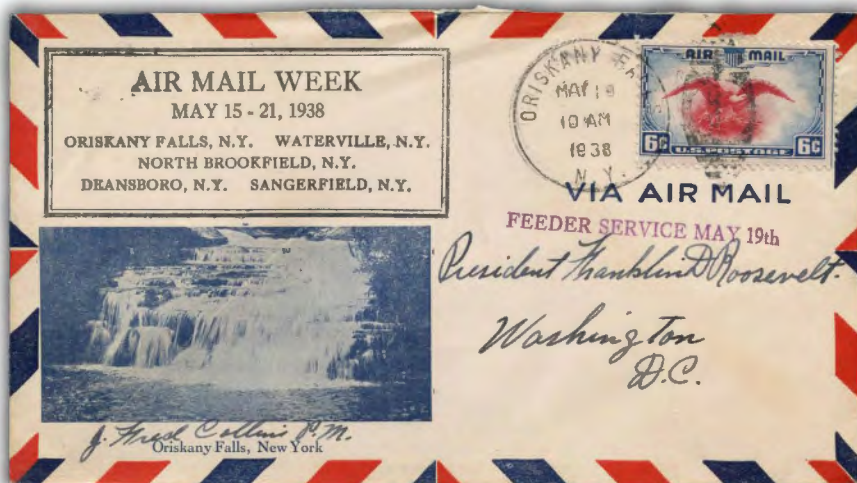 AIR MAIL WEEK
MAY 15 - 21, 1938
ORISKANY FALLS, N.Y. WATERVILLE, N.Y.
NORTH BROOKFIELD, N.Y.
DEANSBORO, N.Y. SANGERFIELD, N.Y.
ORISKANY FALLS
MAY 19
10 AM
1938
N.Y.
AIR MAIL
6¢ U.S. POSTAGE 6¢
VIA AIR MAIL
FEEDER SERVICE MAY 19th
President Franklin D Roosevelt.
Washington
D.C.
J. Fred Collins P.M.
Oriskany Falls, New York